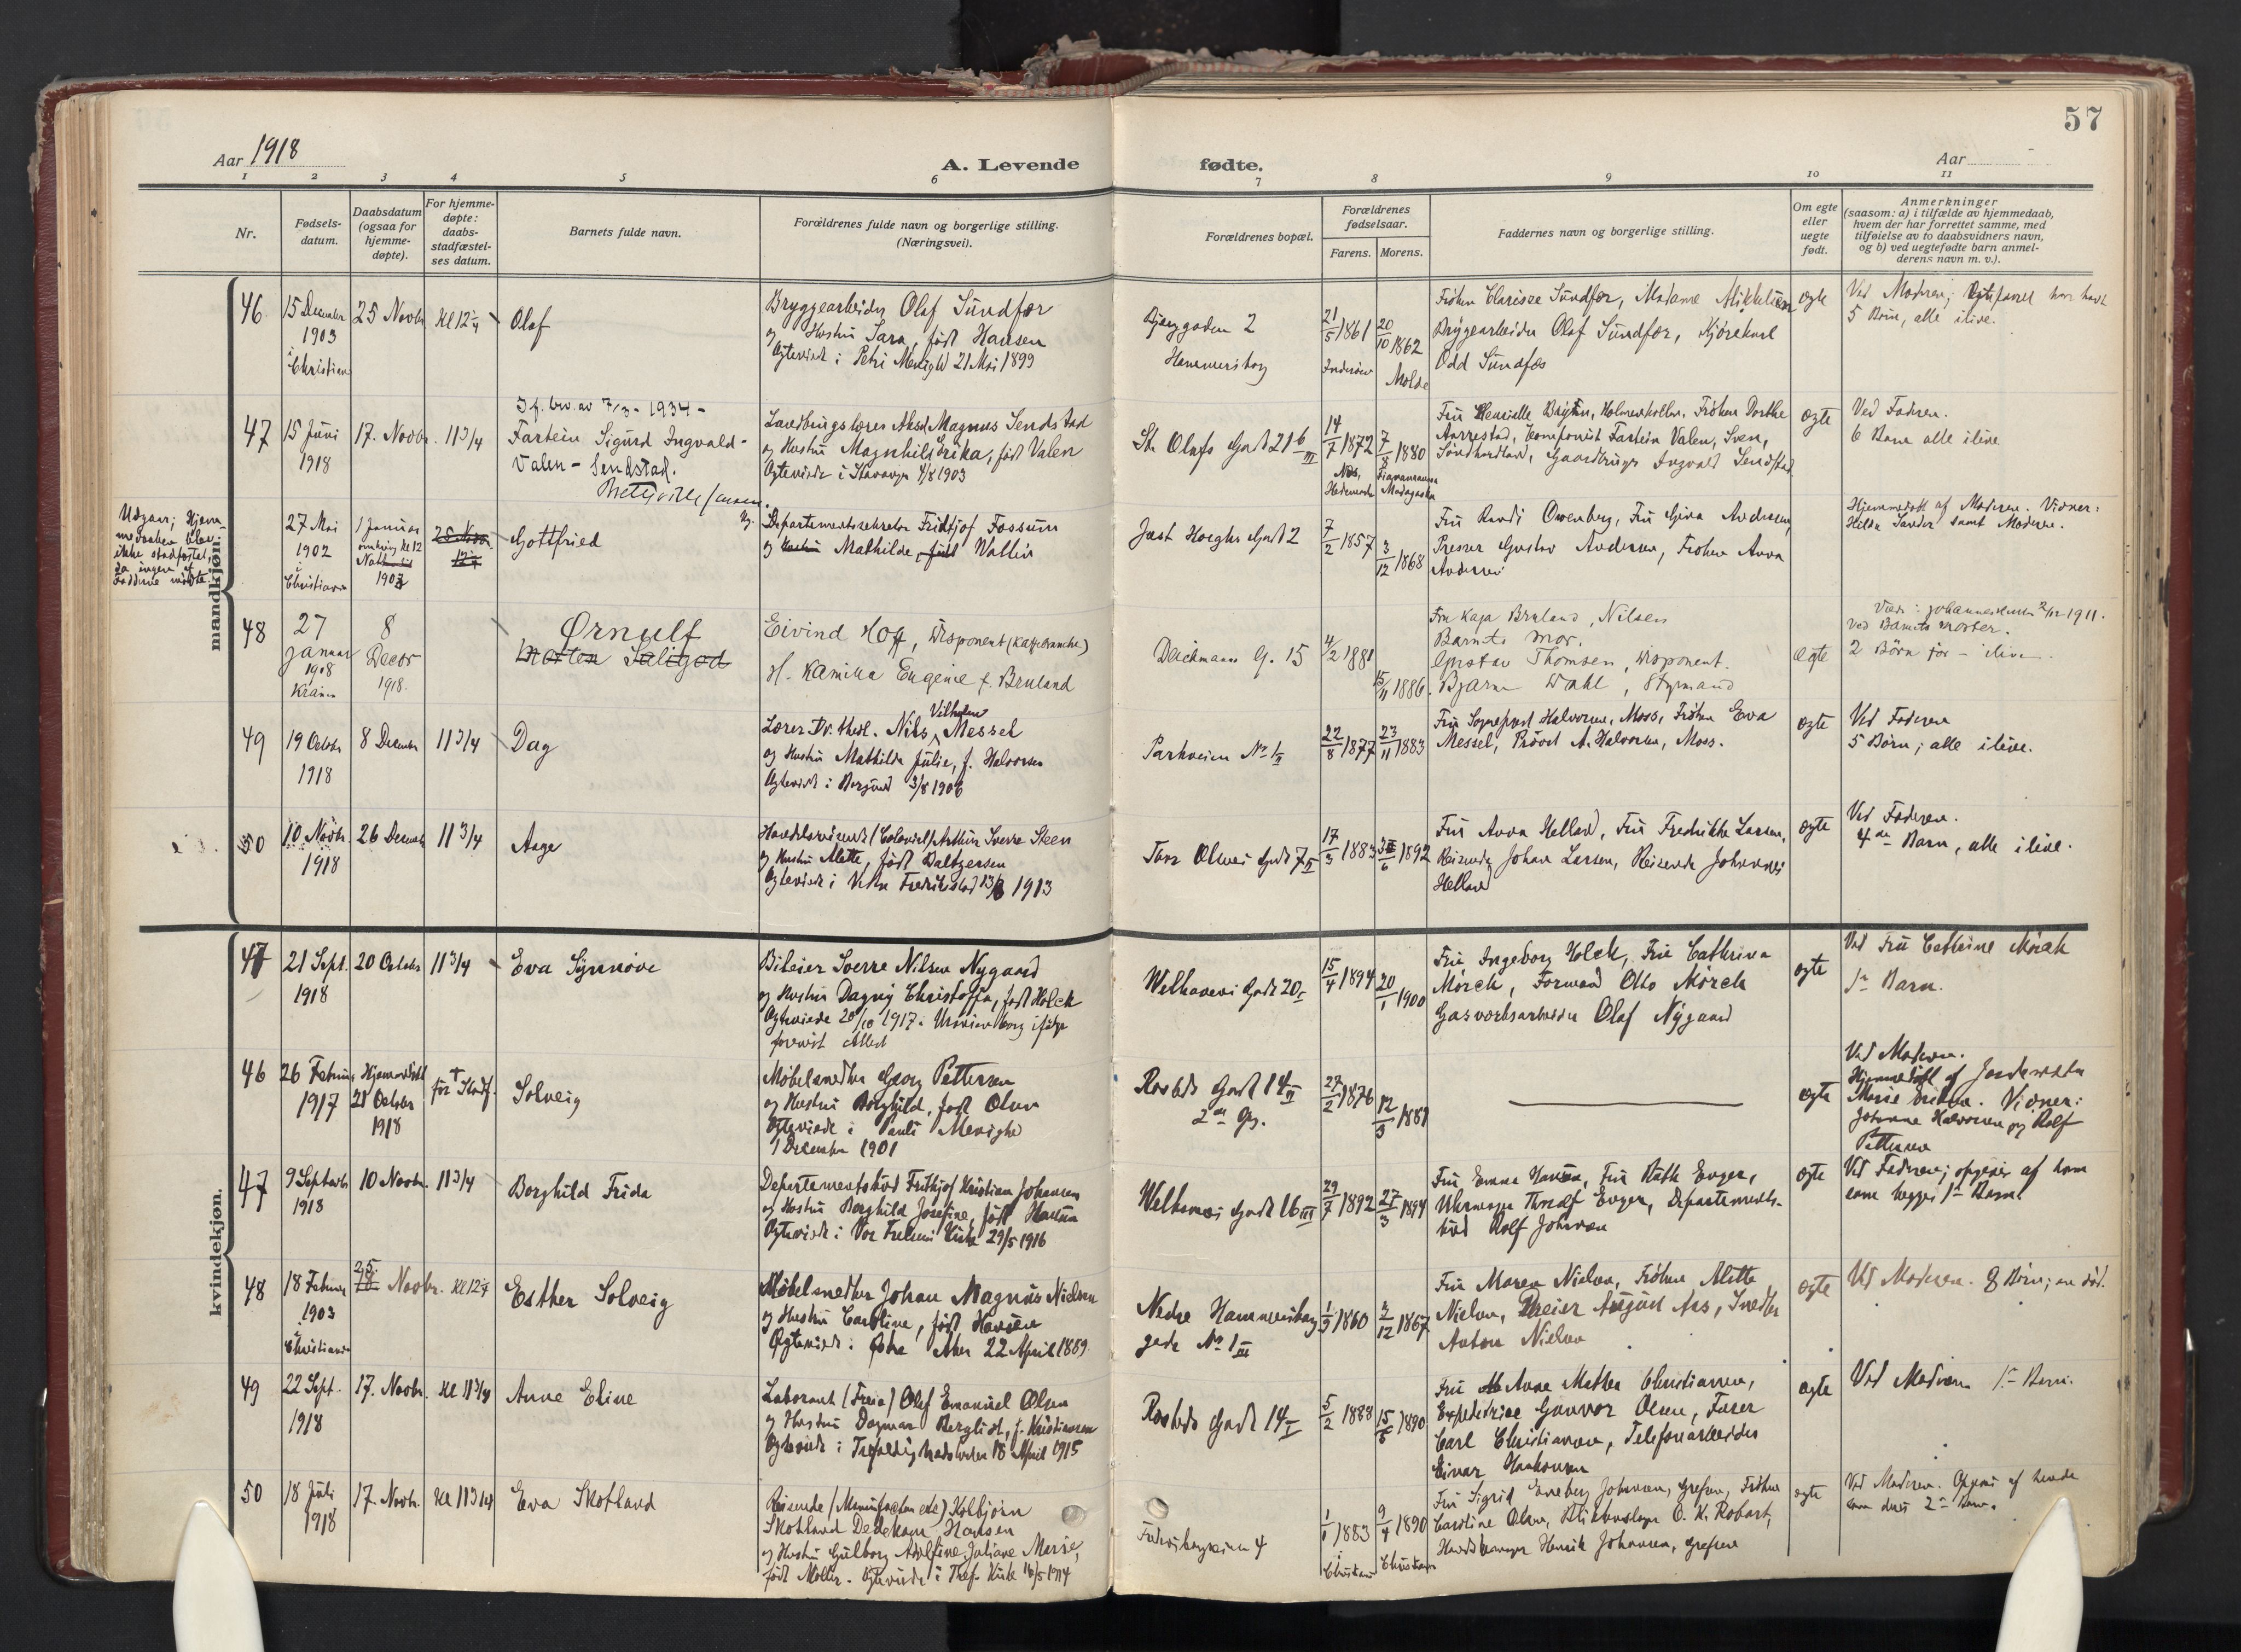 57
Aar 1918
A. Levende
fødte.
Aar
1 2 3 4 5 6 7 8 9 10 11
Nr.
Fødsels-
datum.
Daabsdatum
(ogsaa for
hjemme-
døpte).
For hjemme-
døpte:
daabs-
stadfæstel-
ses datum.
Barnets fulde navn.
Forældrenes fulde navn og borgerlige stilling.
(Næringsvei).
Forældrenes bopæl.
Forældrenes
fødselsaar.
Farens. Morens.
Faddernes navn og borgerlige stilling.
Om egte
eller
uegte
født.
Anmerkninger
(saasom: a) i tilfælde av hjemmedaab,
hvem der har forrettet samme, med
tilføielse av to daabsvidners navn,
og b) ved uegtefødte barn anmel-
derens navn m. v.).
mandkjøn.
46
15 December
1903
i
Christiania
25 Novbr
Kl 12
Olaf
Bryggearbeider Olaf Sundfær
og Hustru Sara, født Hansen
Ægteviede i Petri Menighed 21 Mai 1899
2
Hammersborg
21/5 1861
20/10 1862
Molde
Frøken Clarisse Sundfær, Madame Mikkelsen
Bryggearbeider Olaf Sundfær, Kjørekarl
Odd Sundfær
ægte
Ved Moderen;
5 Børn, alle ilive.
47
15 Juni
1918
17. Novbr.
11 3/4
7/3 - 1934 -
Fartein Sigurd Ingvald
Valen - Sendstad.
Landbrugslærer Aksel Magnus Sendstad
og Hustru Magnhild Erika, født Valen
Ægteviede i Stavanger 4/8 1903
St. Olafs Gade 21 b III
14/7 1872
7/8 1880
Nes,
Hedemarken
Madagaskar
Holmenkollen, Frøken Dorthe
Komponist Fartein Valen, Sveen,
Søndhordland, Gaardbruger Ingvald Sendstad
ægte
Ved Faderen.
6 Børn alle ilive
Udgaar; Hjem-
medaaben blev
ikke stadfæstet,
da ingen af
Fadderne mødte.
27 Mai
1902
i
Christiania
1 Januar
omkring Kl 12
1903
Gottfried
Departementssekretær Fridtjof Fossum
og Hustru Mathilde, født Wallin
Just Høeghs Gade 2
7/2 1857
3/12 1868
Fru Randi Owenberg, Fru Gina Andersen,
Presser Gustav Andersen, Frøken Anna
Andersen
Hjemmedøbt af Moderen. Vidner:
Helda Sander samt Moderen.
48
27
januar
1908
Krania
8
Decbr
1918.
Ørnulf
Morten Saligod
Eivind Hoff, Disponent (Kaffebranche)
H. Kamilla Eugenie f. Bruland
Deichmans G. 15
4/2 1881
15/11 1886.
Fru Kaja Bruland, Nilsen
Barnets mor.
Gustav Thomsen, Disponent.
Bjarne Wahl, Styrmand
egte
Viede: Johanneskirken 2/12 1911.
Ved Barnets moder.
2 Børn før - ilive.
49
19 Octobr
1918
8 Decembr
11 3/4
Dag
Lærer Dr. theol. Nils Vilhelm Messel
og Hustru Mathilde Julie, f. Halvorsen
Ægteviede i Borgund 3/8 1906
Parkveien No 1 II
22/8 1877
23/11 1883
Fru Sogneprest Halvorsen, Moss, Frøken Eva
Messel, Provst A. Halvorsen, Moss.
ægte
Ved Faderen
5 Børn; alle ilive.
50
10 Novbr
1918
26 Decemb
11 3/4
Aage
Handelsreisende (Colonial) Arthur Sverre Steen
og Hustru Alette, født Baltzersen
Ægteviede i Vestre Fredrikstad 1913
Tore Olsens Gade 7 II
17/3 1883
1892
Fru Anna Helland, Fru Fredrikke Larsen,
Reisende Johan Larsen, Reisende Johannes
Helland
ægte
Ved Faderen.
4de Barn, alle ilive.
kvindekjøn.
21 Sept.
1918
20 Octobr
11 3/4
Eva Synnøve
Bileier Sverre Nilsen Nygaard
og Hustru Dagny Christoffa, født Holck
Ægteviede 20/10 1917 i Uranienborg ifølge
forevist Attest
Welhavens Gade 20 I
15/4 1894
20/1 1900
Fru Ingeborg Holck, Fru Cathrina
Mørck, Formand Otto Mørck
Gasverksarbeider Olaf Nygaard
ægte
Ved Fru Cathrine Mørck
1ste Barn.
46
26 Februar
1917
Hjemmedøbt
21 Octobr
1918
før Stadf.
Solveig
Møbelsnedker Georg Pettersen
og Hustru Borghild, født Olsen
Ægteviede i Pauli Menighed
1 December 1901
Rosteds Gade 14 II
2den Og.
27/2 1876
12/3 1881
ægte
Ved Moderen.
Hjemmedøbt af Jordemoder
Vidner:
Johanne Halvorsen og Rolf
Pettersen
47
9 Septembr
1918
10 Novbr.
11 3/4
Borghild Frida
Departementsbud Frithjof Kristian Johansen
og Hustru Borghild Josefine, født Hansen
Ægteviede i Vor Frelsers Kirke 29/5 1916
Welhavens Gade 16 III
29/7 1892
27/3 1894
Fru Emma Hansen, Fru Ruth Enger,
Uhrmager Thorolf Enger, Departements-
bud Rolf Johansen
ægte
Ved Faderen; opgives af ham
som begges 1ste Barn.
48
18 Februar
1903
i
Christiania
25.
18 Novbr.
Kl 12
Esther Solveig
Møbelsnedker Johan Magnus Nielsen
og Hustru Caroline, født Hansen
Ægteviede i Østre Aker 22 April 1889
Nedre Hammersborg
gade No 1 III
1/9 1860
2/12 1867
Fru Maren Nielsen, Frøken Alette
Nielsen, Dreier August Aas, Snedker
Anton Nielsen
ægte
Ved Moderen. 8 Børn; en død.
49
22 Sept.
1918
17. Novbr.
Kl 11 3/4
Anne Eline
Laborant (Freia) Olaf Emanuel Olsen
og Hustru Dagmar Bergliot, f. Kristiansen
Ægteviede i Trefoldighedskirken 18 April 1915
Rosteds Gade 14 I
5/2 1888
15/5 1890
Fru Anne Mathea Christiansen,
Expeditrice Gunvor Olsen, Fører
Carl Christiansen, Telefonarbeider
Einar Haakonsen
ægte
Ved Moderen 1ste Barn.
50
18 Juli
1918
17. Novbr.
Kl 11 3/4
Eva Skotland
Reisende (Manufactur etc) Kolbjørn
Skotland Dedekam Hansen
og Hustru Gulborg Adelfine Juliane Marie,
født Møller. Ægteviede i Tref. Kirke 16/5 1914
4
1/1 1883
i
Christiania
9/4 1890
Christiania
Fru Sigrid Enneberg Johansen, Grefsen, Frøken
Caroline Olsen, Blikkenslager O. K. Robart,
Henrik Johansen, Grefsen
ægte
Ved Moderen. Opgives af hende
som deres 2det Barn.